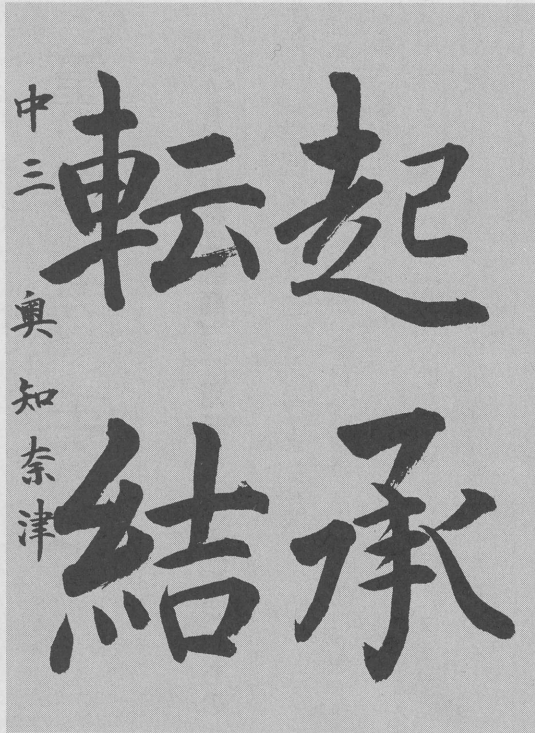 起承
転結
中三 奥知奈津